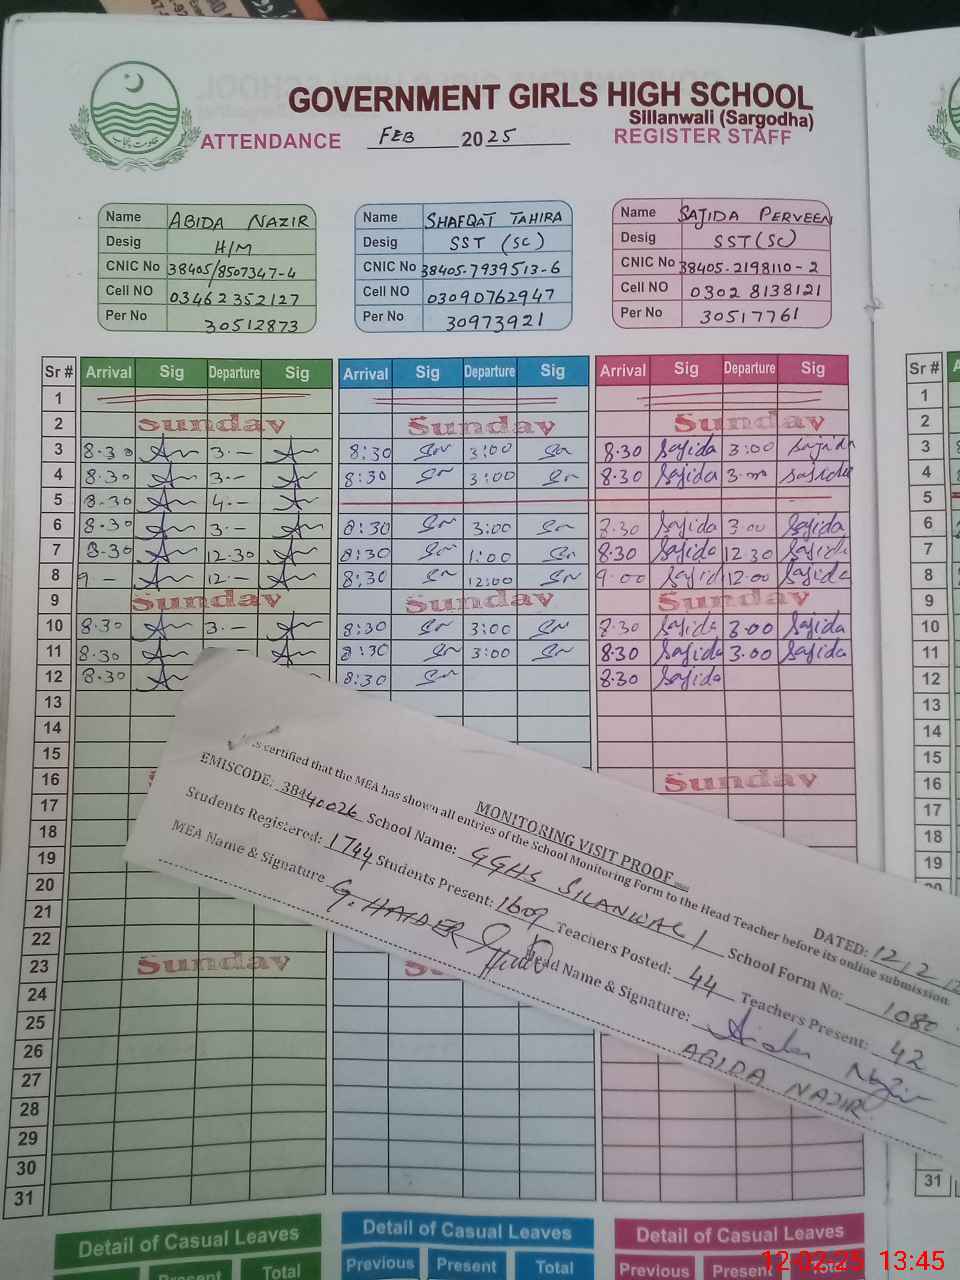 GOVERNMENT GIRLS HIGH SCHOOL
Sillanwali (Sargodha)
ATTENDANCE FEB 2025 REGISTER STAFF
Name ABIDA NAZIR
Desig H/M
CNIC No 38405/8507347-4
Cell NO 03462352127
Per No 30512873
Name SHAFQAT TAHIRA
Desig SST (SC)
CNIC No 38405-7939513-6
Cell NO 03090762947
Per No 30973921
Name SAJIDA PERVEEN
Desig SST(SC)
CNIC No 38405-2198110-2
Cell NO 0302 8138121
Per No 30517761
Sr # Arrival Sig Departure Sig Arrival Sig Departure Sig Arrival Sig Departure Sig Sr #
1 1
2 Sunday Sunday Sunday 2
3 8.30 3.— 8:30 3:00 8.30 Sajida 3:00 Sajida 3
4 8.30 3.— 8:30 3:00 8.30 Sajida 3.00 Sajida 4
5 8.30 4.— 5
6 8.30 3.— 8:30 3:00 8.30 Sajida 3.00 Sajida 6
7 8.30 12.30 8:30 1:00 8.30 Sajida 12.30 Sajida 7
8 9 — 12.— 8:30 12:00 9.00 Sajida 12.00 Sajida 8
9 Sunday Sunday Sunday 9
10 8.30 3.— 8:30 3:00 8.30 Sajida 3.00 Sajida 10
11 8.30 8:30 3:00 8.30 Sajida 3.00 Sajida 11
12 8.30 8:30 8.30 Sajida 12
13 13
14 14
15 15
16 Sunday 16
17 17
18 18
19 19
20
21
22
23 Sunday
24
25
26
27
28
29
30
31 31
MONITORING VISIT PROOF
DATED: 12/2/
is certified that the MEA has shown all entries of the School Monitoring Form to the Head Teacher before its online submission
EMISCODE: 38440026 School Name: GGHS SILANWALI School Form No: 1080
Students Registered: 1744 Students Present: 1609 Teachers Posted: 44 Teachers Present: 42
MEA Name & Signature G. HAIDER Head Name & Signature: Abida Nazir
ABIDA NAZIR
Detail of Casual Leaves Detail of Casual Leaves Detail of Casual Leaves
Present Total Previous Present Total Previous Present Total
12-02-25 13:45